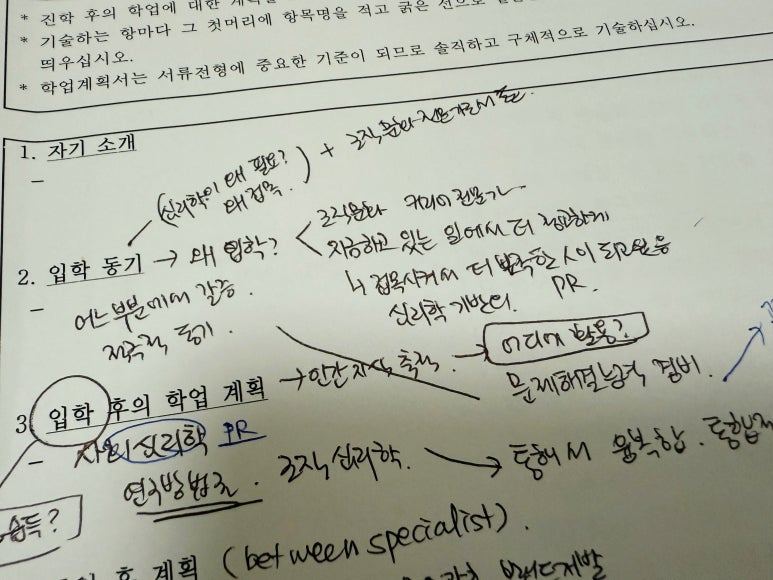 * 진학 후의 학업에 대한
* 기술하는 항마다 그 첫머리에 항목명을 적고 굵은 선으로
띄우십시오.
* 학업계획서는 서류전형에 중요한 기준이 되므로 솔직하고 구체적으로 기술하십시오.
1. 자기 소개
-
(심리학이 왜 필요?
왜 접목.) + 조직문화
2. 입학 동기 → 왜 입학? < 조직문화 커리어 전문가
지금하고 있는 일에서 더 전문하게
접목시켜서 더 만족한 사이 되고 싶음
심리학 기반의 PR.
- 어느부분에서 갈증.
적극적 동기.
3. 입학 후의 학업 계획 → 인간 지식 축적 → 어디에 활용?
문제해결능력 겸비.
- 사회심리학 PR
연구방법론. 조직심리학. → 통해서 융복합. 통합적
습득?
후 계획 (between specialist).